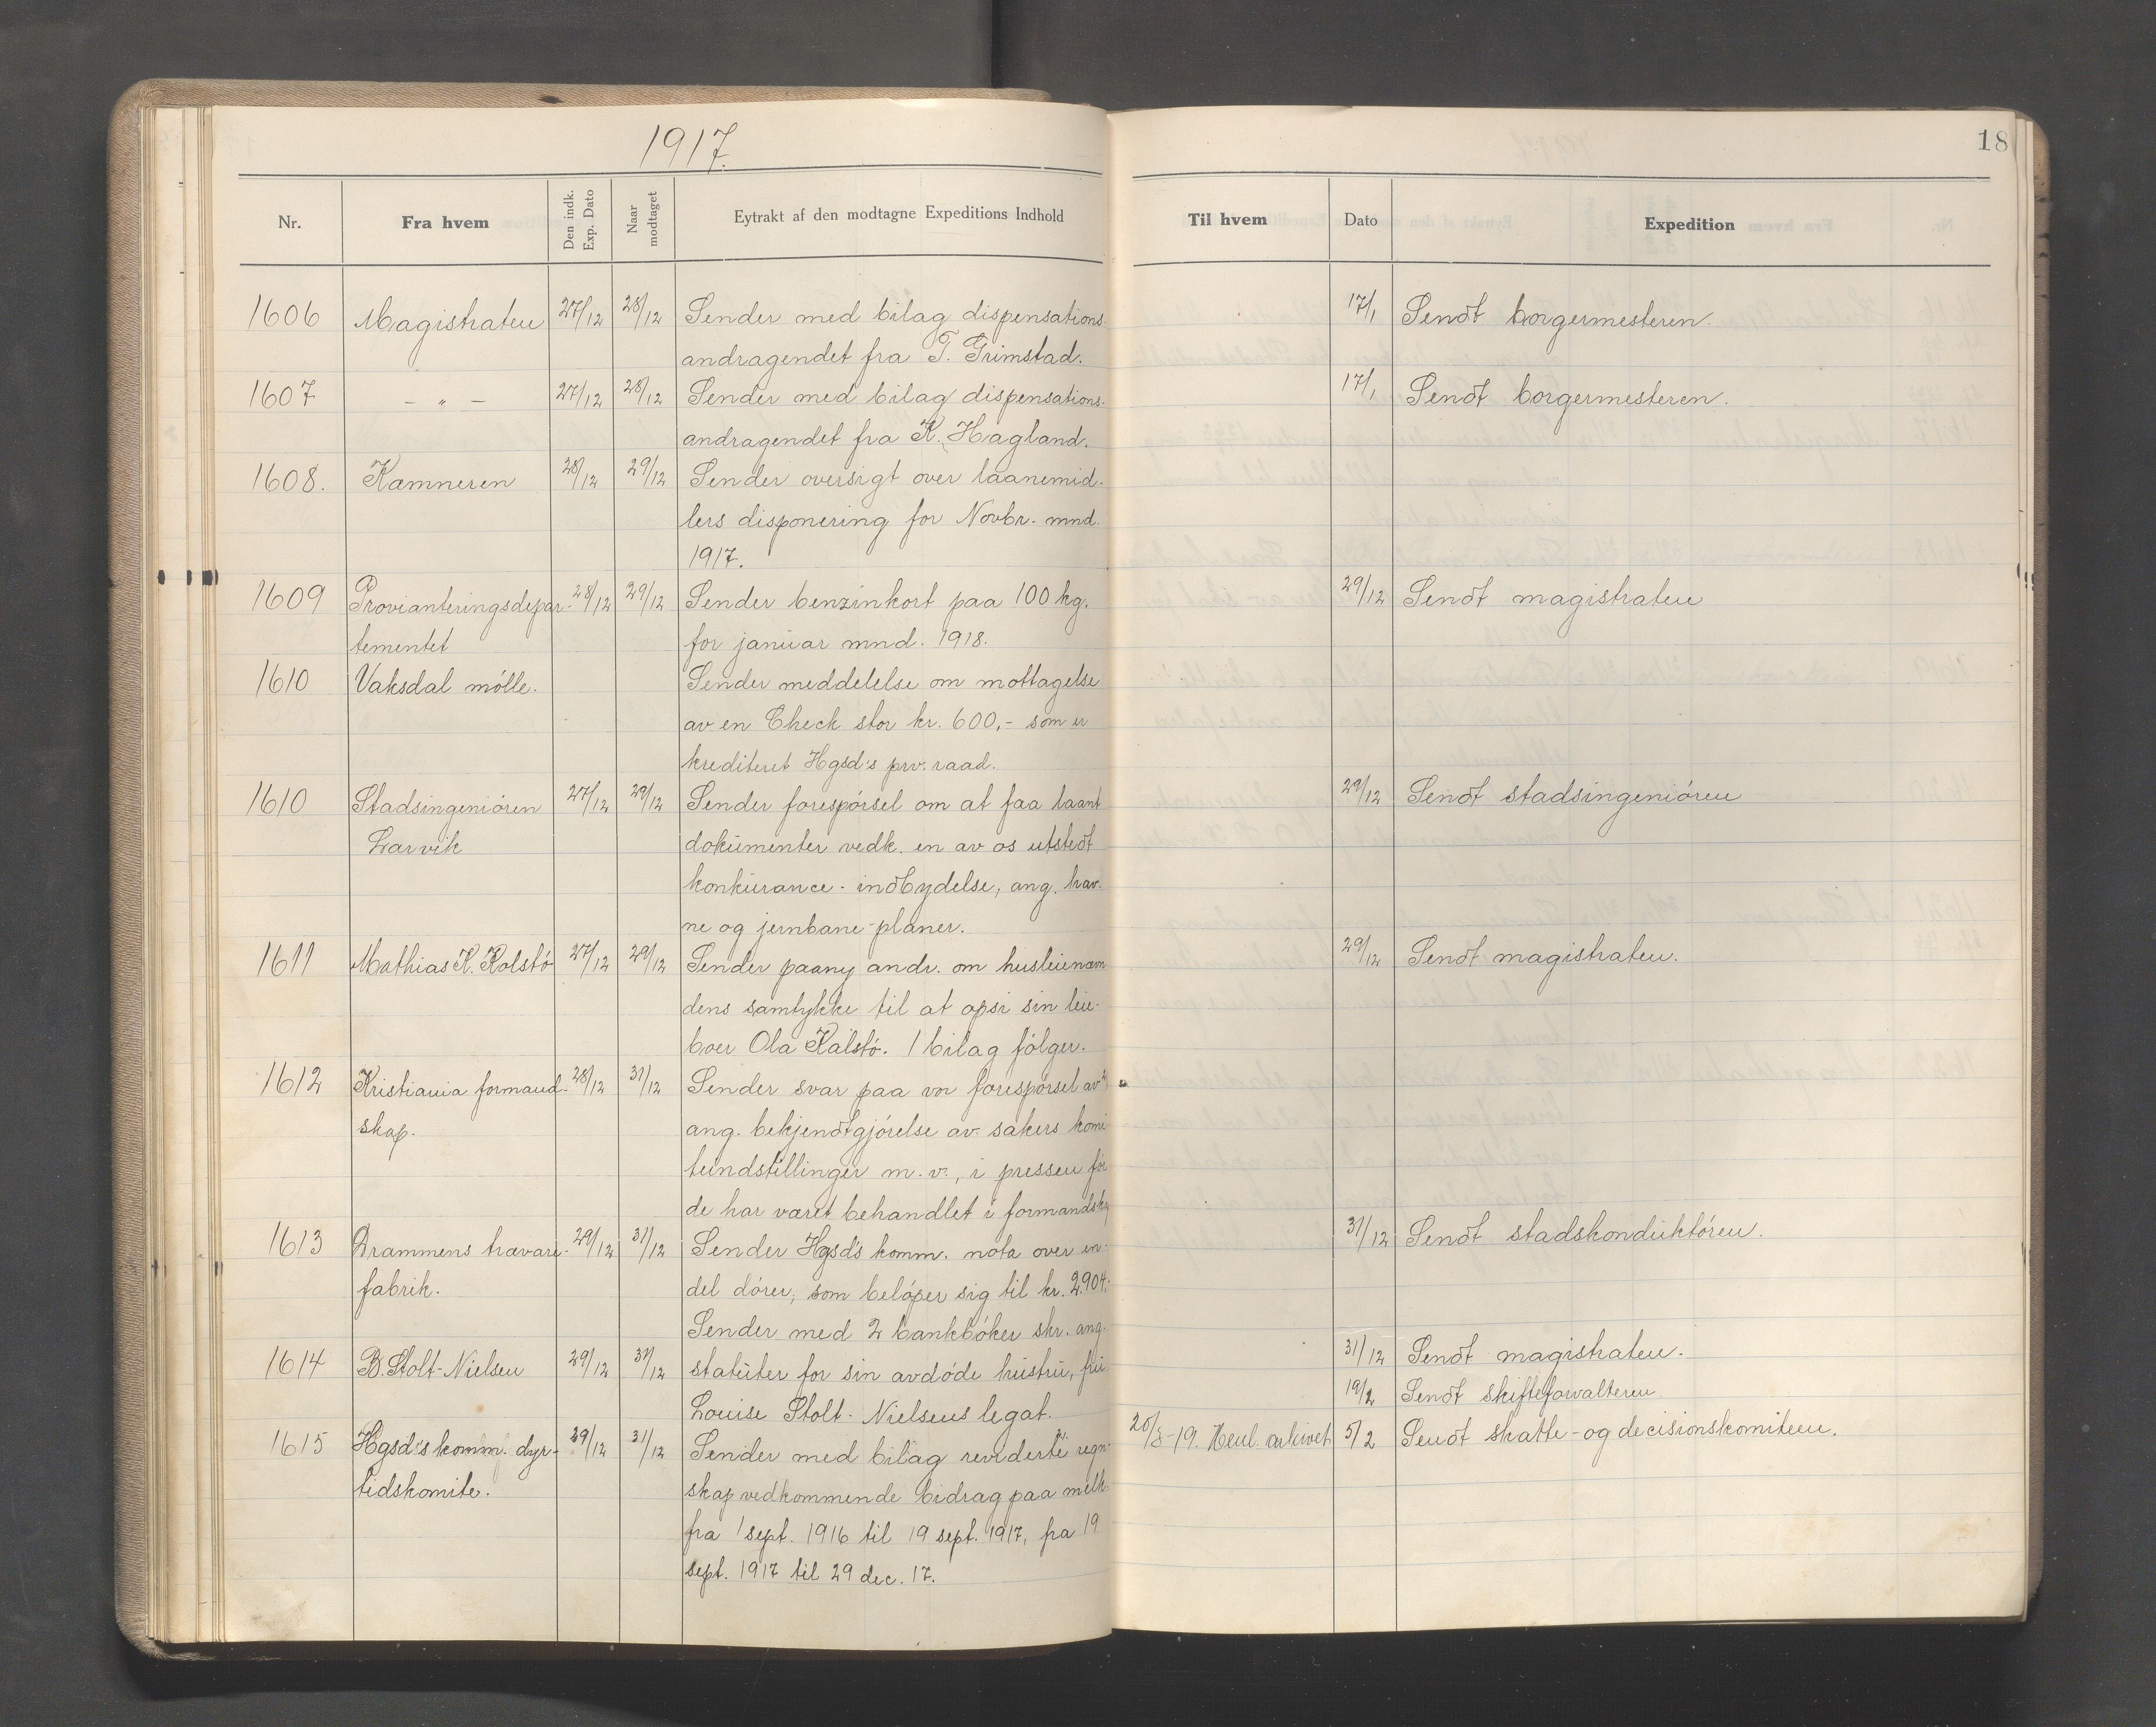 1917.
18
Nr.
Fra hvem
Den indk. Exp. Dato
Naar modtaget
Eytrakt af den modtagne Expeditions Indhold
Til hvem
Dato
Expedition
1606 Magistraten 27/12 28/12 Sender med bilag dispensations- 17/1 Sendt borgermesteren.
andragendet fra T. Grimstad.
1607 - " - 27/12 28/12 Sender med bilag dispensations- 17/1 Sendt borgermesteren.
andragendet fra K. Hagland.
1608. Kæmneren 28/12 29/12 Sender oversigt over laanemid-
lers disponering for Novbr. mnd.
1917.
1609 Provianteringsdepar- 28/12 29/12 Sender benzinkort paa 100 kg. 29/12 Sendt magistraten
tementet for januar mnd. 1918.
1610 Vaksdal mölle. Sender meddelelse om mottagelse
av en Check stor kr. 600,- som er
krediteret Hgsd's prv. raad.
1610 Stadsingeniören 27/12 29/12 Sender forespörsel om at faa laant 29/12 Sendt stadsingeniören
Larvik dokumenter vedk. en av os utstedt
konkurance-indbydelse, ang. hav-
ne og jernbane-planer.
1611 Mathias K. Kolstö 27/12 29/12 Sender paany andr. om husleienævn 29/12 Sendt magistraten.
dens samtykke til at opsi sin leie-
boer Ola Kalstö. 1 bilag fölger.
1612 Kristiania formand- 28/12 31/12 Sender svar paa vor forespörsel av
skap. ang. bekjendtgjörelse av sakers komi-
teindstillinger m.v., i pressen för
de har været behandlet i formandskap
1613 Drammens trævare- 29/12 31/12 Sender Hgsd's komm. nota over en- 31/12 Sendt stadskonduktören.
fabrik. del dörer, som belöper sig til kr. 2.904.-
Sender med 2 bankböker skr. ang.
1614 B. Stolt-Nielsen 29/12 31/12 statuter for sin avdöde hustru, fru 31/12 Sendt magistraten.
Louise Stolt-Nielsens legat. 19/2 Sendt skifteforvalteren.
1615 Hgsd's komm. dyr- 29/12 31/12 Sender med bilag reviderte regn- 20/3-19. Henl. arkivet 5/2 Sendt skatte- og decisionskomiteen.
tidskomite. skap vedkommende bidrag paa melk
fra 1 sept. 1916 til 19 sept. 1917, fra 19
sept. 1917 til 29 dec. 17.